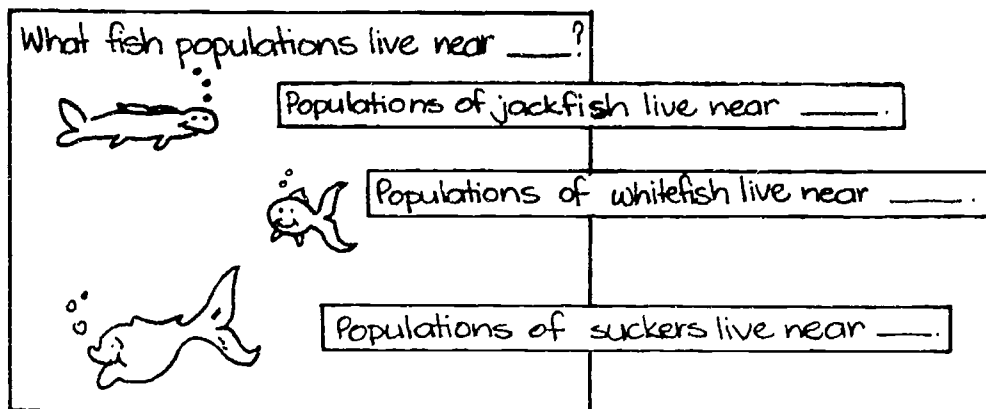 What fish populations live near ____?
Populations of jackfish live near ____.
Populations of whitefish live near ____.
Populations of suckers live near ____.